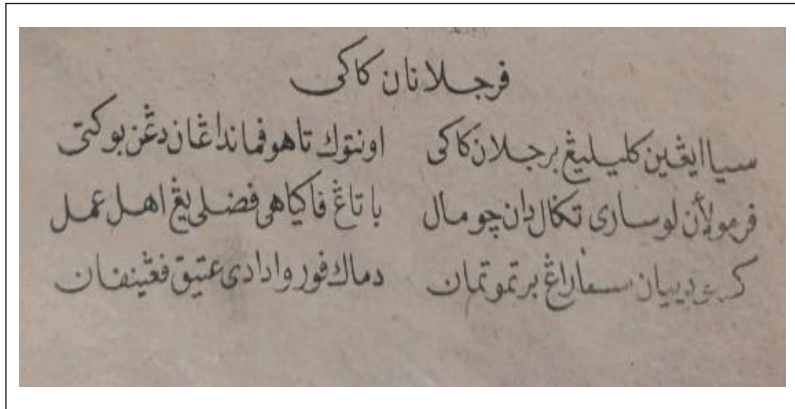 فرجلانان كاكي
سيا ايڠين كليليڠ برجلان كاكي اونتوك تاهو فمانداڠان دڠن بوكتي
فرمولأن لوساري تكال دان چومال باتاڠ فاكياهي فضلي يڠ اهل عمل
سماراڠ برتموتمان دماك فوروادادي عتيق فڠينفان